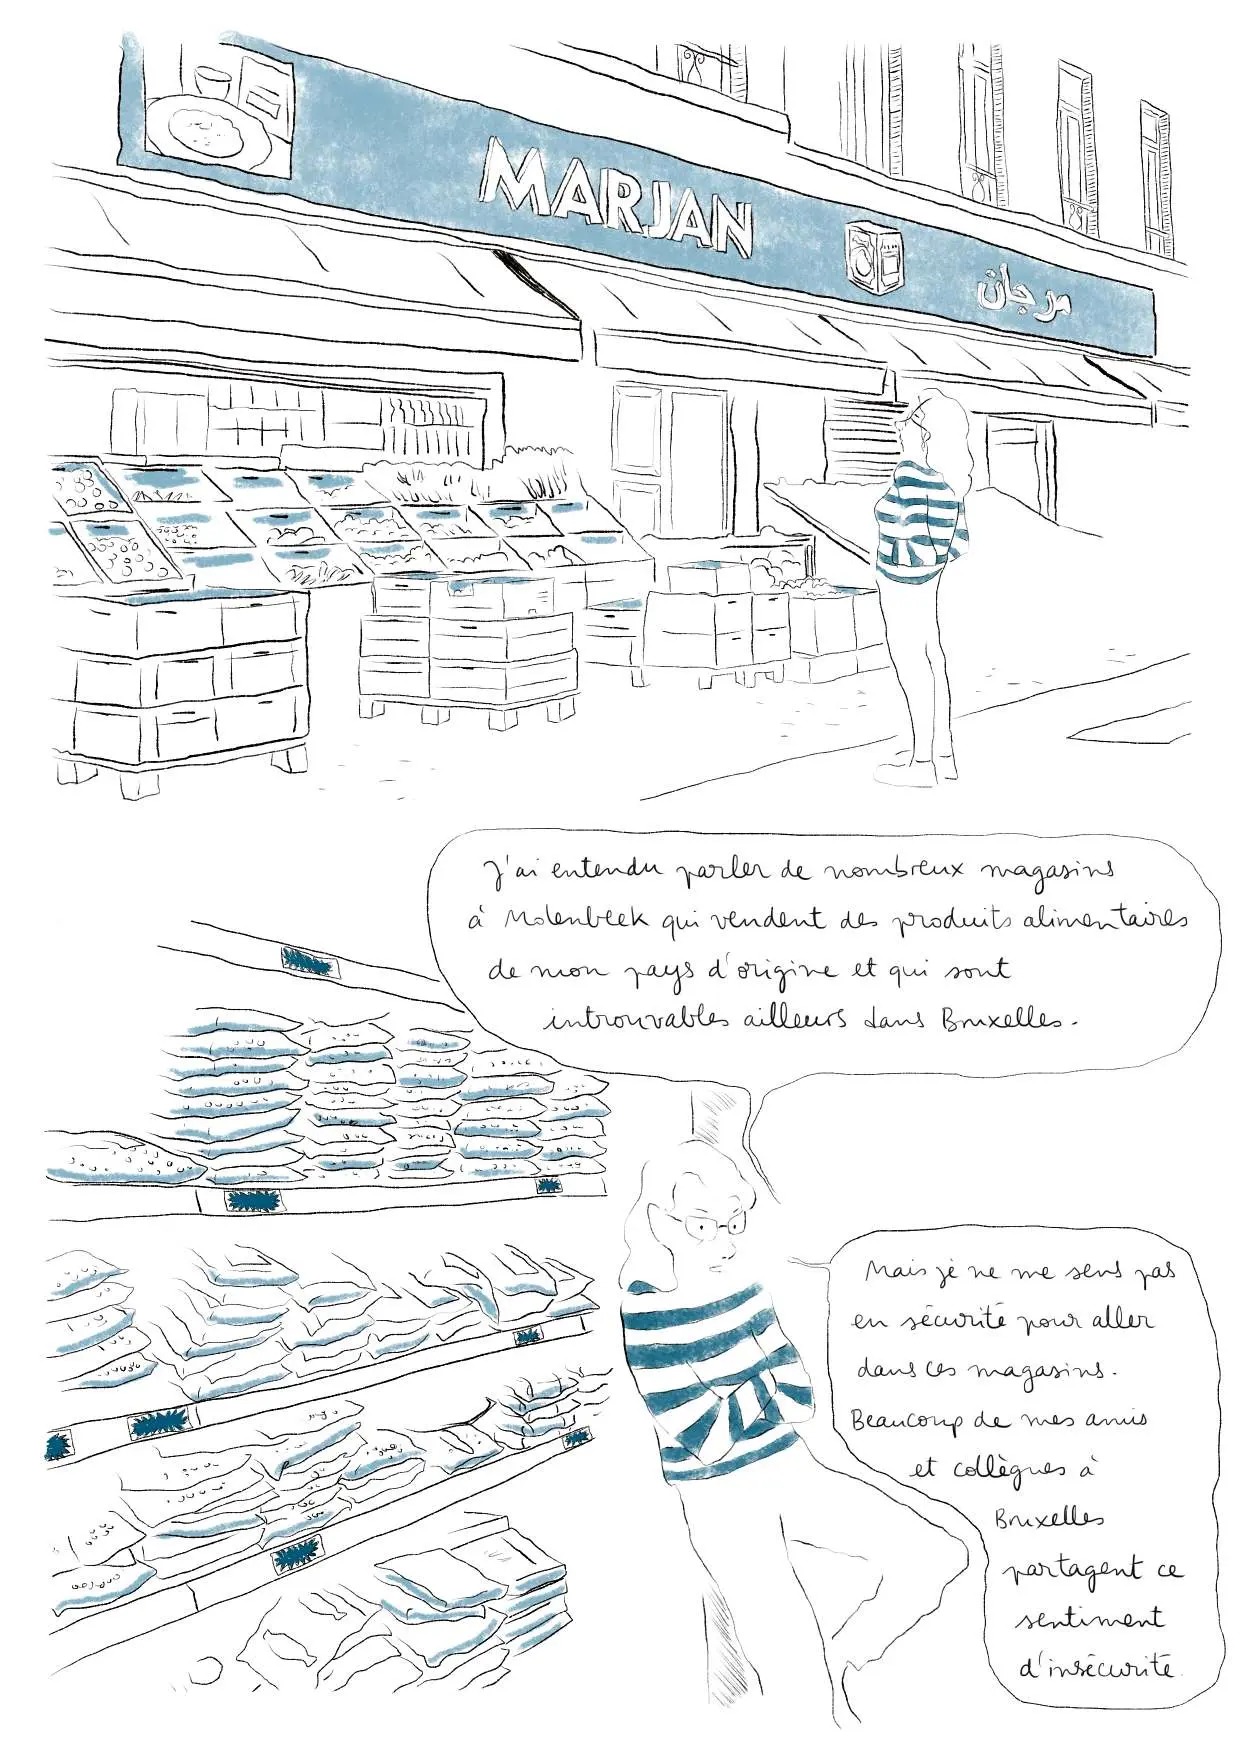 MARJAN
مرجان
J'ai entendu parler de nombreux magasins
à Molenbeek qui vendent des produits alimentaires
de mon pays d'origine et qui sont
introuvables ailleurs dans Bruxelles.
Mais je ne me sens pas
en sécurité pour aller
dans ces magasins.
Beaucoup de mes amis
et collègues à
Bruxelles
partagent ce
sentiment
d'insécurité.